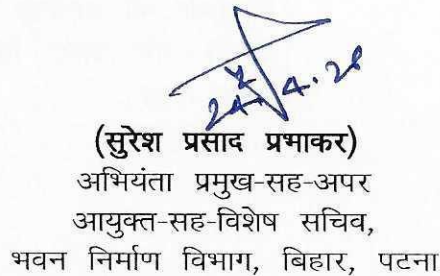 24.4.20
(सुरेश प्रसाद प्रभाकर)
अभियंता प्रमुख-सह-अपर
आयुक्त-सह-विशेष सचिव,
भवन निर्माण विभाग, बिहार, पटना